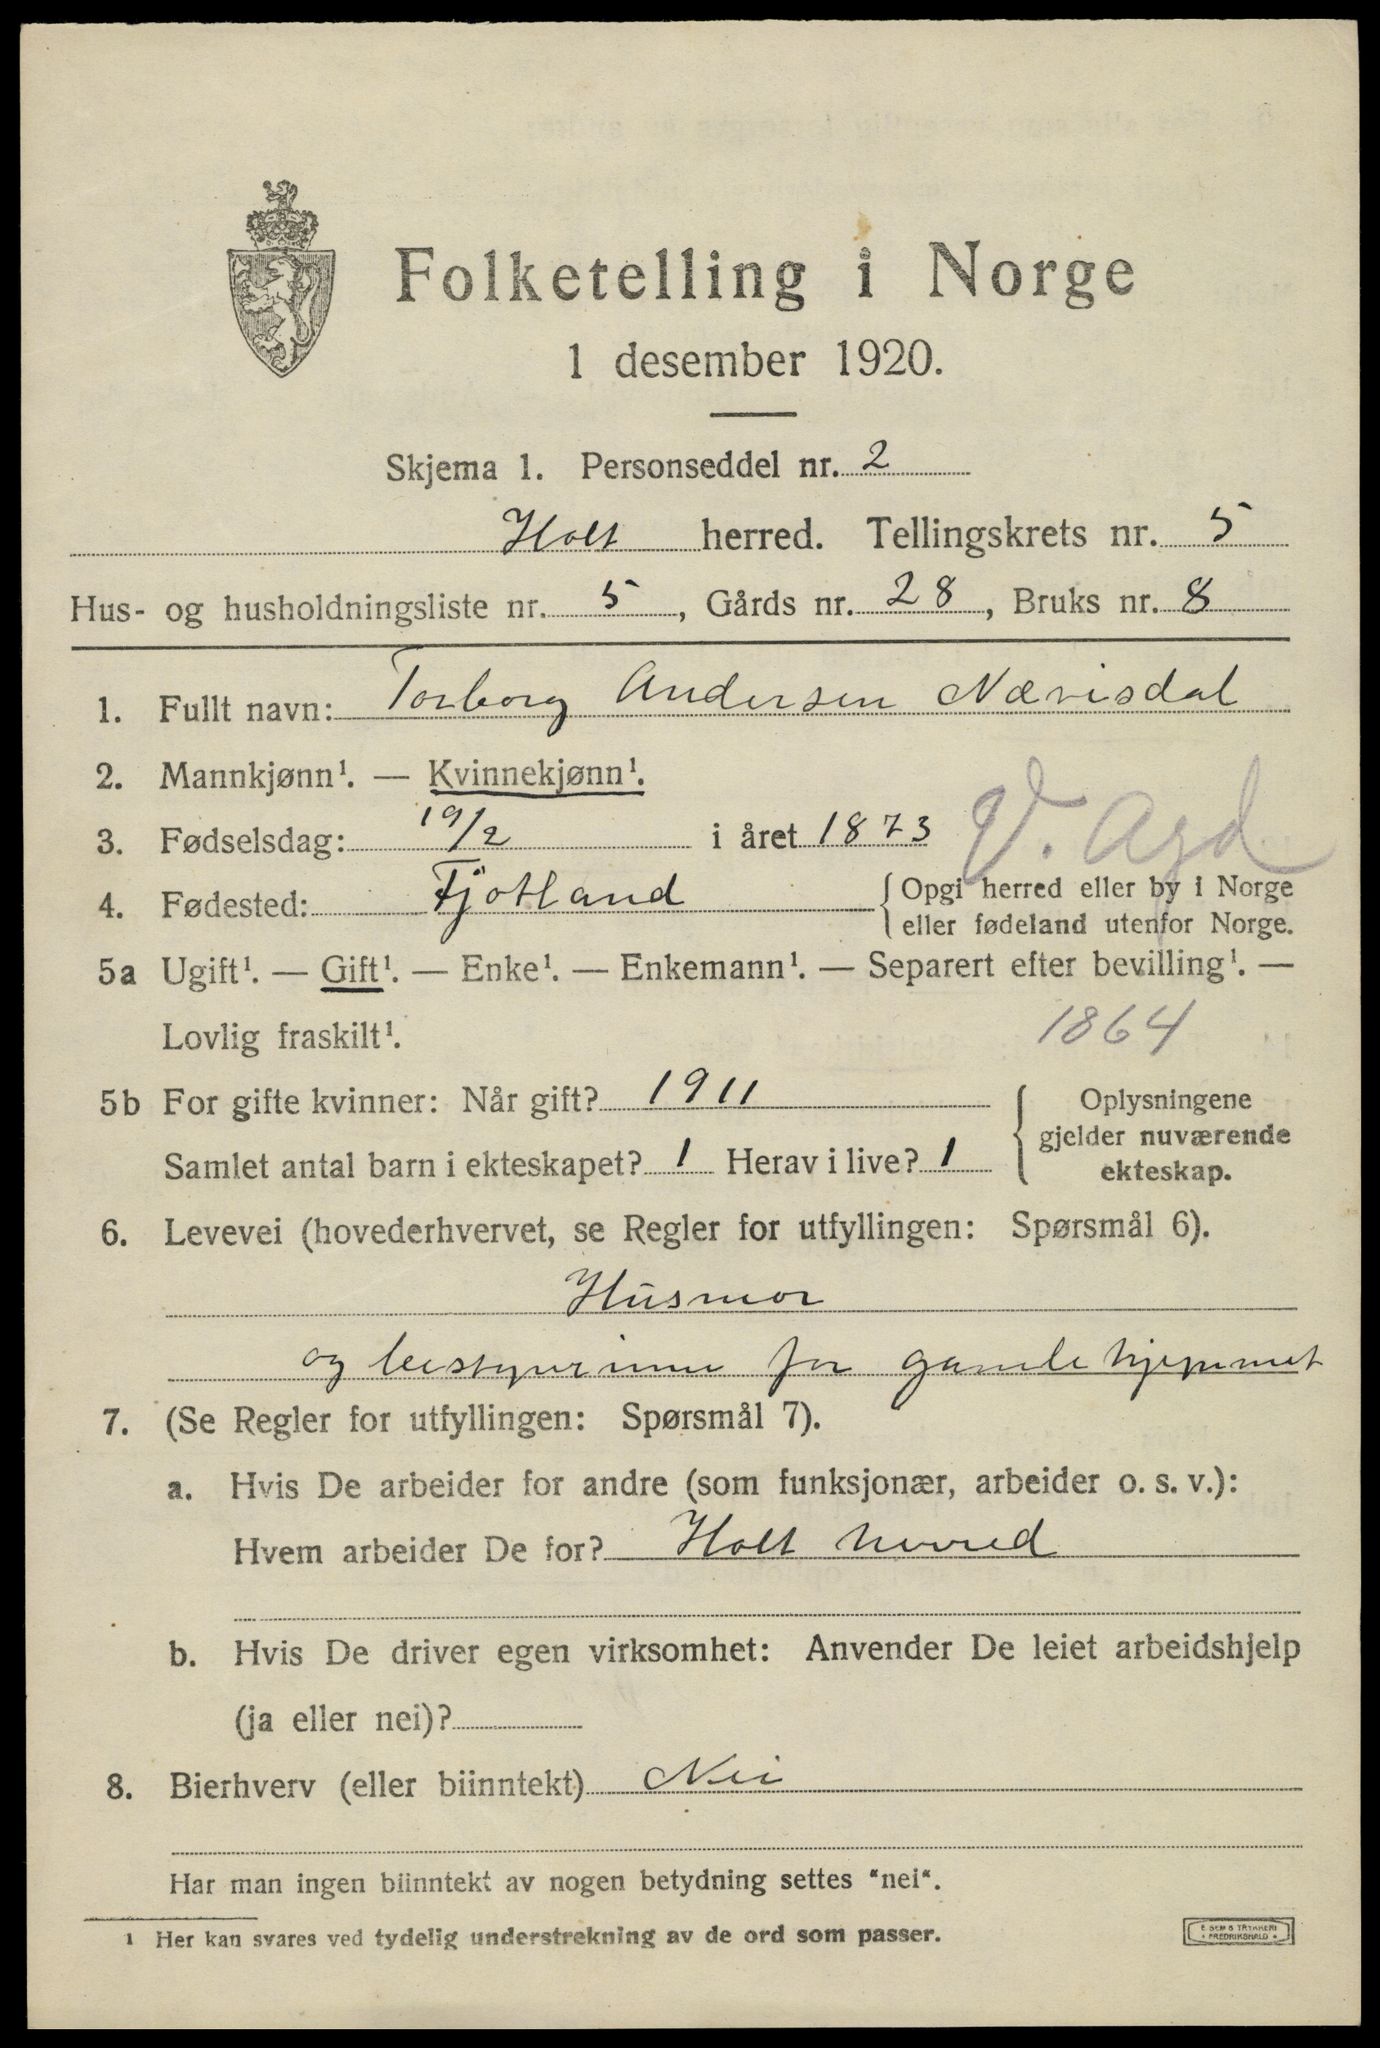 Folketelling i Norge
1 desember 1920.
Skjema 1. Personseddel nr. 2
Holt herred. Tellingskrets nr. 5
Hus- og husholdningsliste nr. 5, Gårds nr. 28, Bruks nr. 8
1. Fullt navn: Torborg Andersen Nævisdal
2. Mannkjønn¹. — Kvinnekjønn¹.
3. Fødselsdag: 19/2 i året 1873
V. Agd
4. Fødested: Fjotland { Opgi herred eller by i Norge
eller fødeland utenfor Norge.
5a Ugift¹. — Gift¹. — Enke¹. — Enkemann¹. — Separert efter bevilling¹. —
Lovlig fraskilt¹.
1864
5b For gifte kvinner: Når gift? 1911
Samlet antal barn i ekteskapet? 1 Herav i live? 1
Oplysningene
gjelder nuværende
ekteskap.
6. Levevei (hovederhvervet, se Regler for utfyllingen: Spørsmål 6).
Husmor
og bestyrerinne for gamlehjemmet
7. (Se Regler for utfyllingen: Spørsmål 7).
a. Hvis De arbeider for andre (som funksjonær, arbeider o. s. v.):
Hvem arbeider De for? Holt herred
b. Hvis De driver egen virksomhet: Anvender De leiet arbeidshjelp
(ja eller nei)?
8. Bierhverv (eller biinntekt) Nei
Har man ingen biinntekt av nogen betydning settes "nei".
1 Her kan svares ved tydelig understrekning av de ord som passer.
E. SEM'S TRYKKERI
FREDRIKSHALD